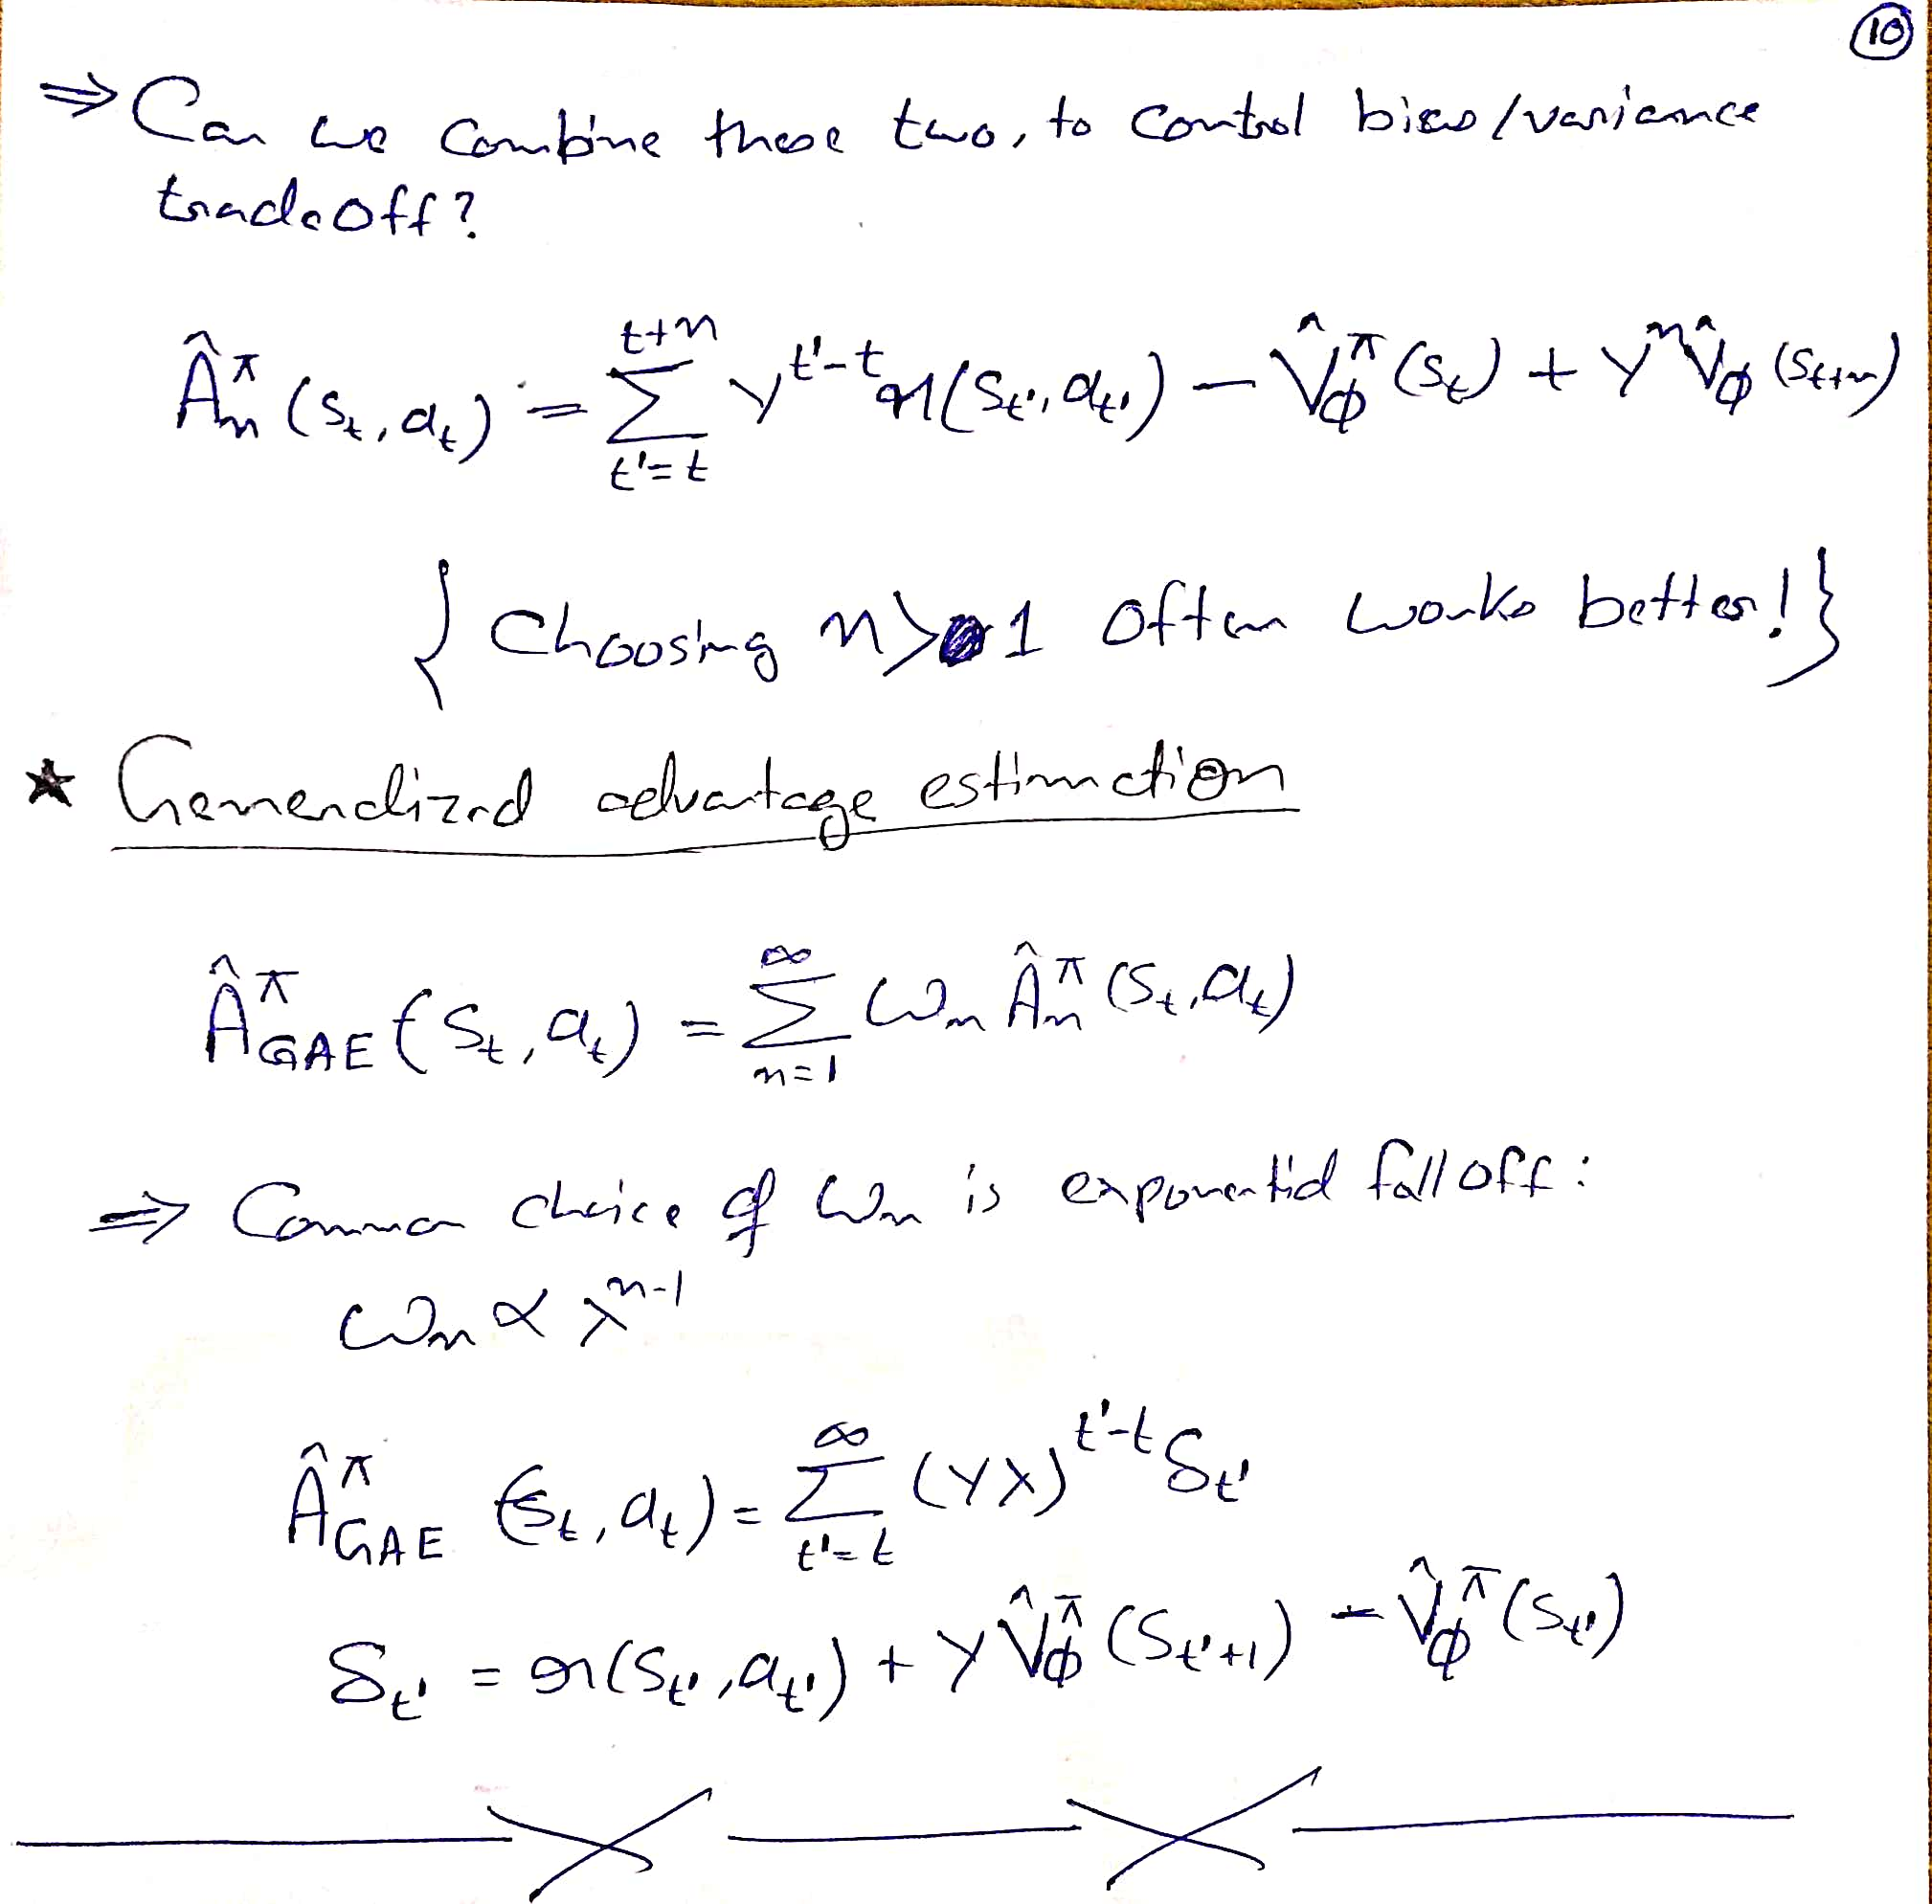 10
⇒ Can we combine these two, to control bias/variance
tradeoff?
Â^π_n (s_t, a_t) = Σ_{t'=t}^{t+n} γ^{t'-t} r(s_{t'}, a_{t'}) − V̂^π_φ (s_t) + γ^n V̂_φ (s_{t+n})
{ Choosing n>1 often works better! }
* Generalized advantage estimation
Â^π_GAE (s_t, a_t) = Σ_{n=1}^{∞} ω_n Â^π_n (s_t, a_t)
⇒ Common choice of ω_n is exponential fall off:
ω_n ∝ λ^{n-1}
Â^π_GAE (s_t, a_t) = Σ_{t'=t}^{∞} (γλ)^{t'-t} δ_{t'}
δ_{t'} = r(s_{t'}, a_{t'}) + γ V̂^π_φ (s_{t'+1}) − V̂^π_φ (s_{t'})